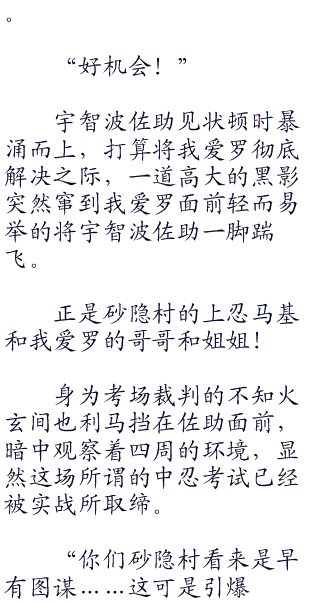 。
“好机会！”
宇智波佐助见状顿时暴
涌而上，打算将我爱罗彻底
解决之际，一道高大的黑影
突然窜到我爱罗面前轻而易
举的将宇智波佐助一脚踹
飞。
正是砂隐村的上忍马基
和我爱罗的哥哥和姐姐！
身为考场裁判的不知火
玄间也利马挡在佐助面前，
暗中观察着四周的环境，显
然这场所谓的中忍考试已经
被实战所取缔。
“你们砂隐村看来是早
有图谋……这可是引爆